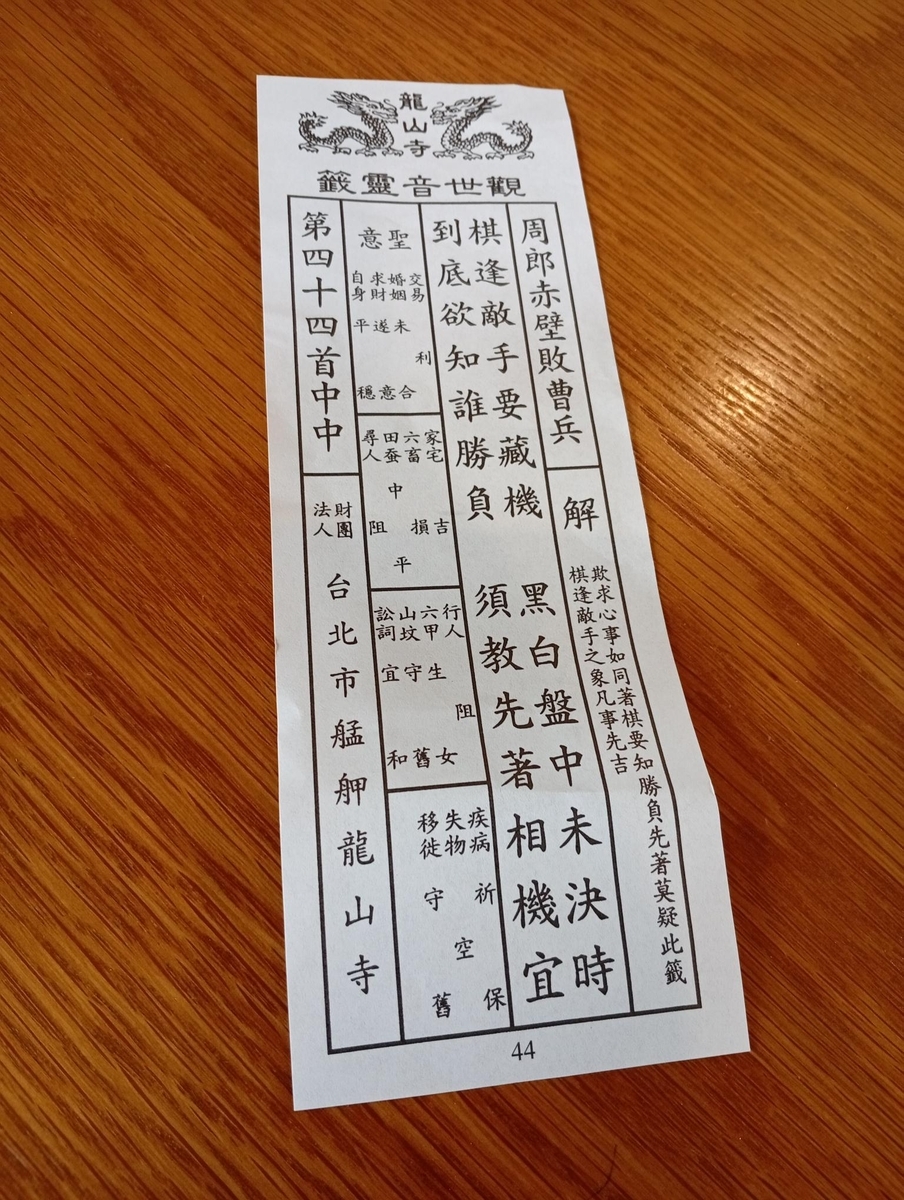 龍山寺
觀世音靈籤
周郎赤壁敗曹兵
解
欺求心事如同著棋要知勝負先著莫疑此籤
棋逢敵手之象凡事先吉
棋逢敵手要藏機 黑白盤中未決時
到底欲知誰勝負 須教先著相機宜
聖意
交易 利
婚姻 未合
求財 遂意
自身 平穩
家宅 吉
六畜 損
田蚕 中平
尋人 阻
行人 阻
六甲 生女
山坟 守舊
訟詞 宜和
疾病 祈保
失物 空
移徙 守舊
第四十四首中中
財團法人
台北市艋舺龍山寺
44